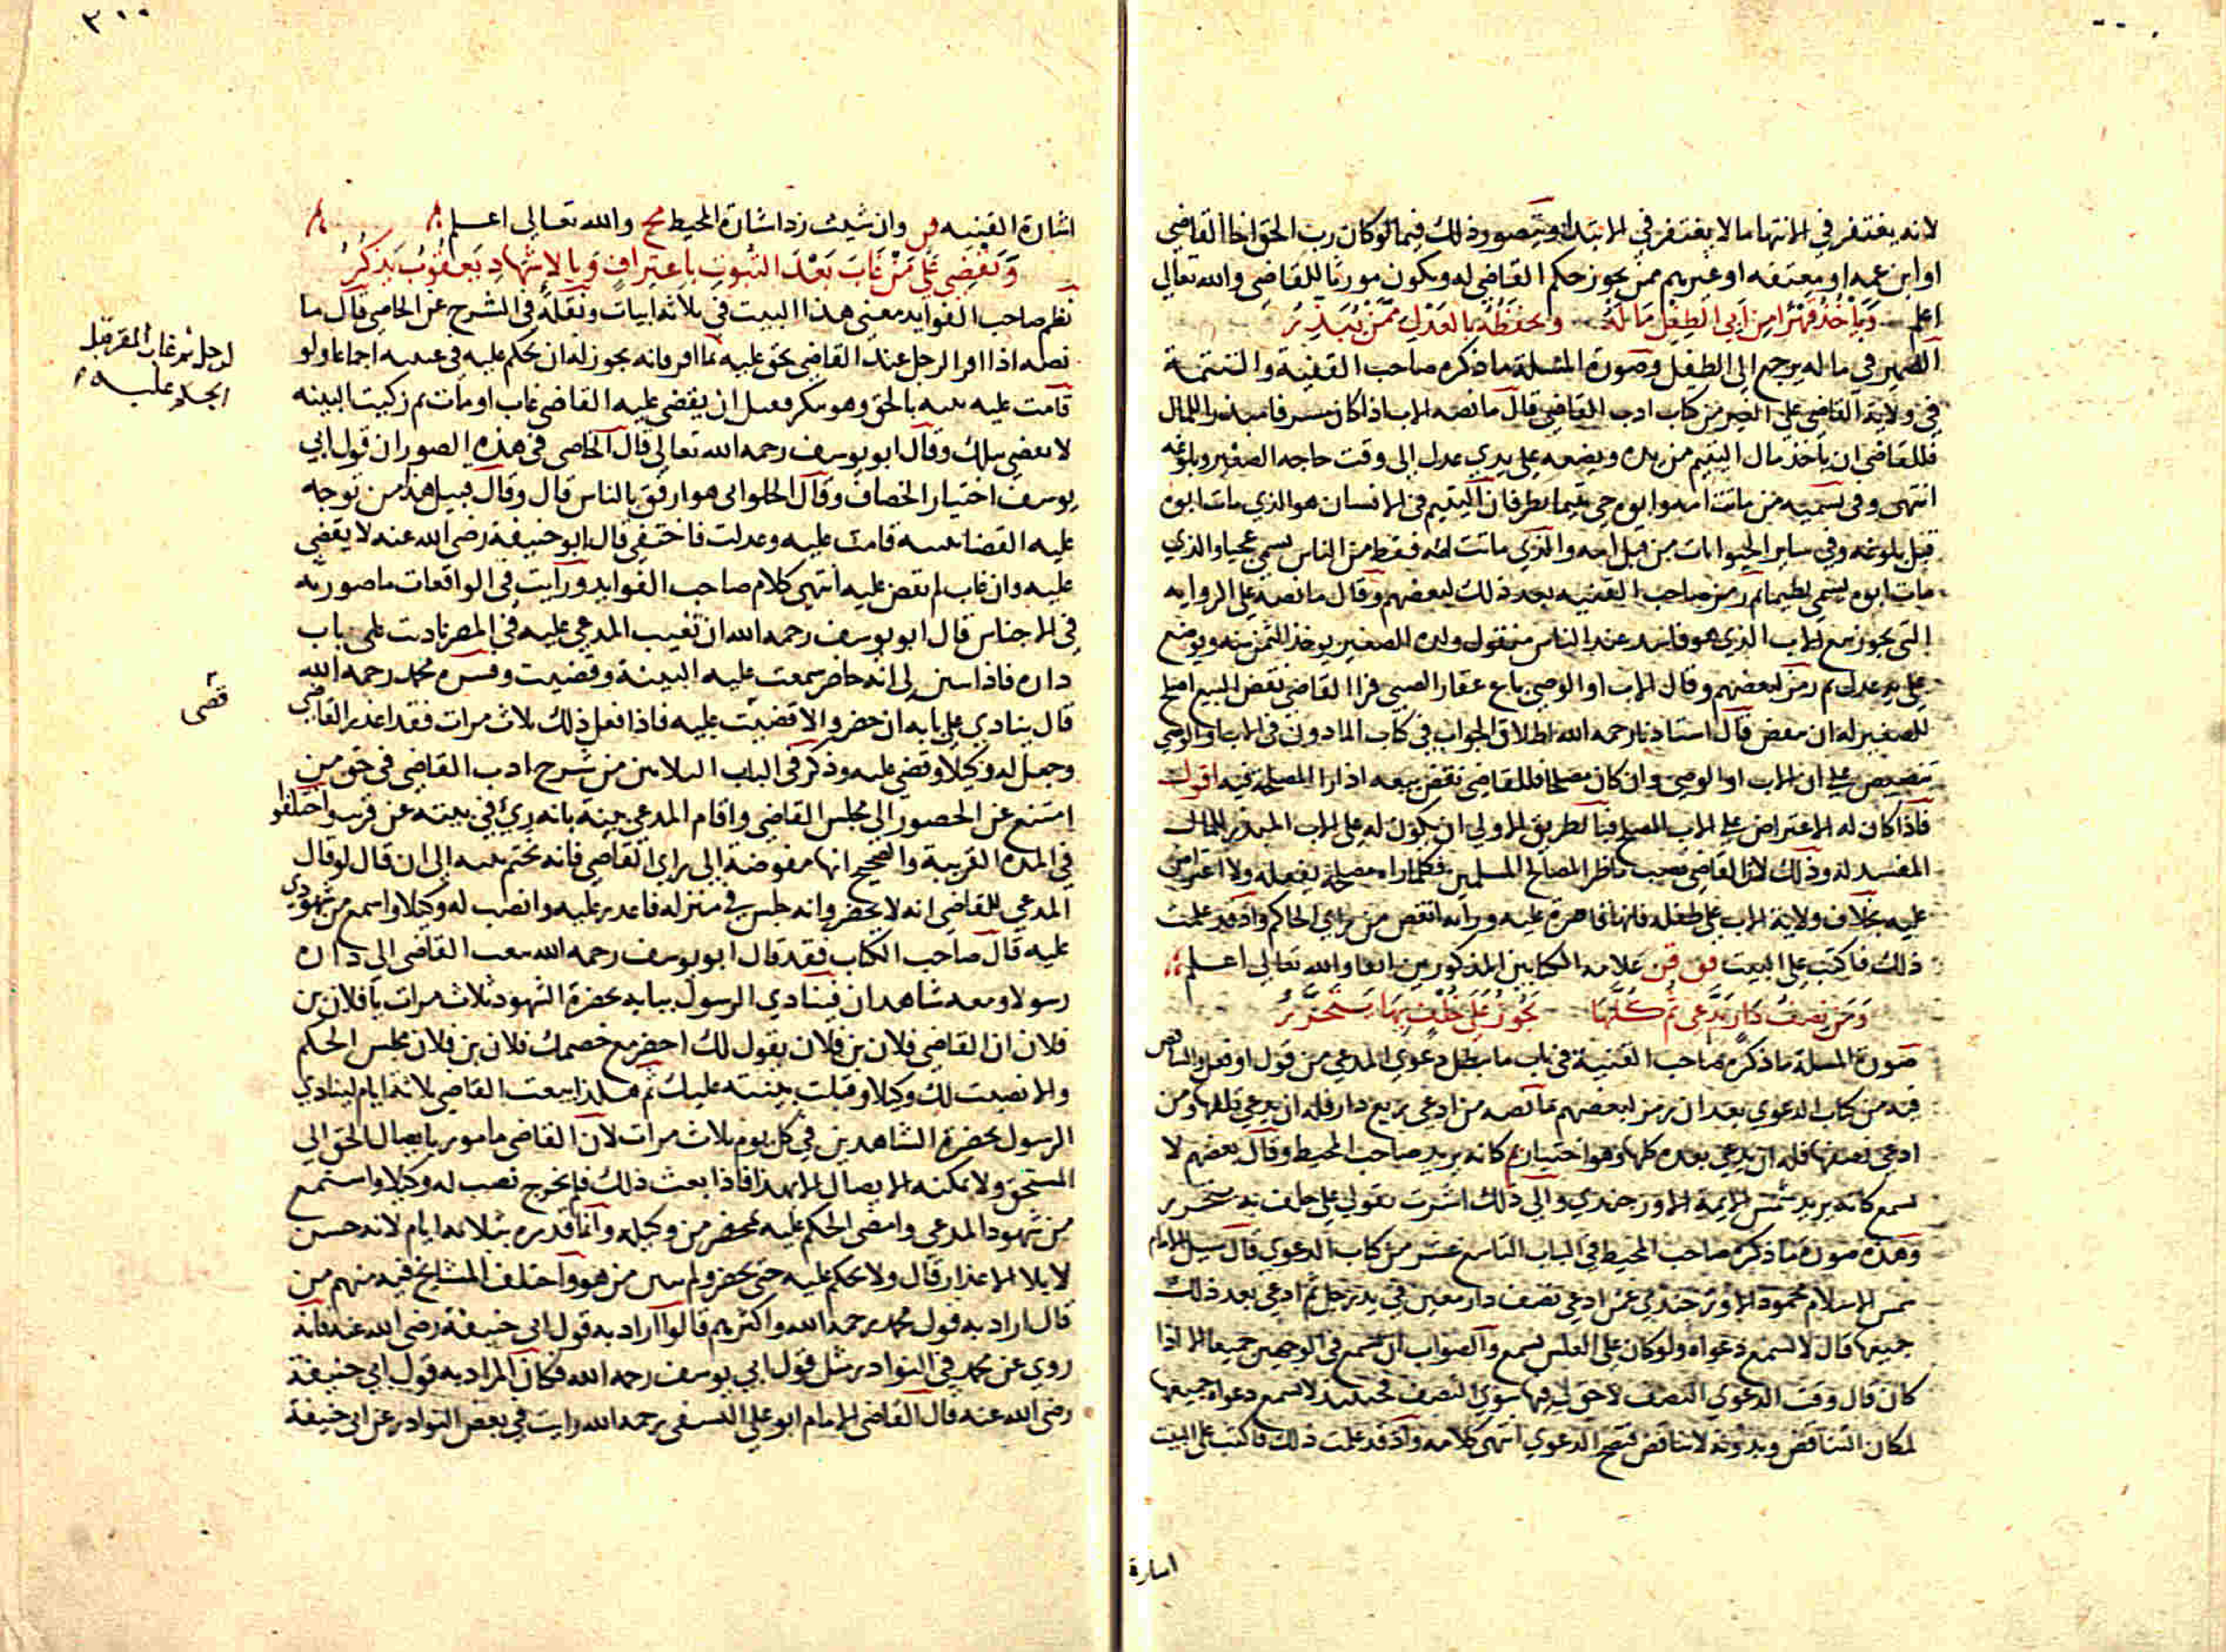 لانه يغتفر في الانتها ما لا يغتفر في الابتداء ويتصور ذلك فيما لو كان رب الحق اخا القاضي
او ابن عمه او معتقه او غيرهم ممن يجوز حكم القاضي له ويكون مورثا للقاضي والله تعالي
اعلم وياخذ قهرا من ابي الطفل ماله ويحفظه بالعدل ممن يبذر
الضمير في ماله يرجع الي الطفل وصورة المسئلة ما ذكره صاحب القنية والتتمة
في ولاية القاضي علي من كتاب ادب القاضي قال ما نصه الاب اذا كان مسرفا مبذرا للمال
فللقاضي ان ياخذ مال اليتيم من يده ويضعه علي يدي عدل الي وقت حاجه الصغير وبلوغه
انتهي وفي تسميه من ماتت امه وابوه حي يتيما نظر فان اليتيم في الانسان هو الذي مات ابوه
قبل بلوغه وفي ساير الحيوانات من قبل امه والذي ماتت امه فقط من الناس يسمي عجيا والذي
مات ابوه يسمي لطيما ثم رمز صاحب القنيه بعد ذلك لبعضهم وقال ما نصه علي الروايه
التي يجوز بيع الاب الذي هو فاسد عند الناس منقول ولده الصغير يوخذ الثمن منه ويوضع
علي يد عدل ثم رمز لبعضهم وقال الاب او الوصي باع عقار الصبي فرا القاضي نقض البيع اصلح
للصغير له ان ينقض قال استاذنا رحمه الله اطلاق الجواب في كتاب الماذون في الاب والوصي
تنصيص علي ان الاب او الوصي وان كان مصلحا فللقاضي نقض بيعه اذا را المصلحة فيه اقول
فاذا كان له الاعتراض علي الاب المصلح فبالطريق الاولي ان يكون له علي الاب المبذر للمال
المفسد له وذلك لان القاضي نصب ناظرا لمصالح المسلمين فكلما راه مصلحة يفعله ولا اعتراض
عليه بخلاف ولاية الاب علي طفله فانها قاصرة عليه ورايه انقص من راي الحاكم واذ قد علمت
ذلك فاكتب علي البيت فق قن علامه الكتابين المذكورين انفا والله تعالي اعلم
ومن نصف دار يدعي ثم كلها يجوز علي خلف بها يتحرر
صورة المسلة ما ذكره صاحب القنية في باب ما يبطل دعوي المدعي من قول او فعل والتناقض
فيه من كتاب الدعوي بعد ان رمز لبعضهم ما نصه من ادعي ربع دار فله ان يدعي ومن
ادعي نصفها فله ان يدعي بعده كلها وهو اختيار كانه يريد صاحب المحيط وقال بعضهم لا
تسمع كانه يريد شمس الايمة الاوزجندي والي ذلك اشرت بقولي علي خلف به يتحرر
وهذه صورة ما ذكره صاحب المحيط في الباب التاسع عشر من كتاب الدعوي قال سيل الامام
شمس الاسلام محمود الاوزجندي عمن ادعي نصف دار معين في يد رجل ثم ادعي بعد ذلك
جميعها قال لا تسمع دعواه ولو كان علي العكس تسمع والصواب ان تسمع في الوجهين جميعا الا اذا
كان قال وقت الدعوي النصف لا حق لي فيها سوي النصف فحينئذ لا تسمع دعواه جميعها
لمكان التناقض وبدونه لا تناقض فتصح الدعوي انتهي كلامه واذ قد علمت ذلك فاكتب علي البيت
اسارة
٣٠٠
اشارة القنيه قن وان شيت زد اشارة المحيط مح والله تعالي اعلم
ويقضي علي من غاب بعد الثبوت باعتراف وبالاشهاد يعقوب يذكر
نظم صاحب الفوايد معني هذا البيت في ثلاثه ابيات ونقله في الشرح عن الخاصي قال ما
نصه اذا اقر الرجل عند القاضي بحق عليه ثما اقر فانه يجوز له ان يحكم عليه في غيبه اجماعا ولو
قامت عليه بينه بالحق وهو ينكر فقبل ان يقضي عليه القاضي غاب او مات ثم زكيت البينه
لا يقضي بتلك وقال ابو يوسف رحمه الله تعالي قال الخاصي في هذه الصور ان قول ابي
يوسف اختيار الخصاف وقال الحلواني هو ارفق بالناس قال وقال قبيل هذا من توجه
عليه القضا ببينه قامت عليه وعدلت فاختفي قال ابو حنيفة رضي الله عنه لا يقضي
عليه وان غاب لم يقض عليه انتهي كلام صاحب الفوايد ورايت في الواقعات ما صورته
في الاجناس قال ابو يوسف رحمه الله ان تغيب المدعي عليه في المصر ناديت علي باب
داره فاذا استبن لي انه حاضر سمعت عليه البينة وقضيت وفسره محمد رحمه الله
قال ينادي علي بابه ان حضر والا قضيت عليه فاذا فعل ذلك ثلاث مرات فقد اعذر القاضي
وجعل له وكيلا وقضي عليه وذكر في الباب الثلاثين من شرح ادب القاضي في حق من
امتنع عن الحضور الي مجلس القاضي واقام المدعي بينة بانه رئ في بيته عن قرب واختلفوا
في المده القريبة والصحيح انها مفوضة الي راي القاضي فانه يختم عليه الي ان قال لو قال
المدعي للقاضي انه لا يحضر وانه جلس في منزله فاعذر عليه وانصب له وكيلا واسمع من شهودي
عليه قال صاحب الكتاب فقد قال ابو يوسف رحمه الله يبعث القاضي الي داره
رسولا ومعه شاهدان فينادي الرسول ببابه بحضرة الشهود ثلاث مرات يا فلان بن
فلان ان القاضي فلان بن فلان يقول لك احضر مع خصمك فلان بن فلان مجلس الحكم
والا نصبت لك وكيلا وقبلت بينته عليك ثم هكذا يبعث القاضي ثلاثة ايام لينادي
الرسول بحضرة الشاهدين في كل يوم ثلاث مرات لان القاضي مامور بايصال الحق الي
المستحق ولا يمكنه الايصال الا بهذا فاذا بعث ذلك فلم يخرج نصب له وكيلا واستمع
من شهود المدعي وامضي الحكم عليه بمحضر من وكيله وانما قدره بثلاثه ايام لانه حسن
لابلا الاعذار قال ولا يحكم عليه حتي يحضر ولم يبين من هو واختلف المشايخ فيه منهم من
قال اراد به قول محمد رحمه الله واكثرهم قالوا اراد به قول ابي حنيفة رضي الله عنه فانه
روي عن محمد في النوادر مثل قول ابي يوسف رحمه الله فكان المراد به قول ابي حنيفة
رضي الله عنه قال القاضي الامام ابو علي النسفي رحمه الله رايت في بعض النوادر عن ابي حنيفة
لرجل ثم غاب المقر قبل
الحكم عليه
قضى